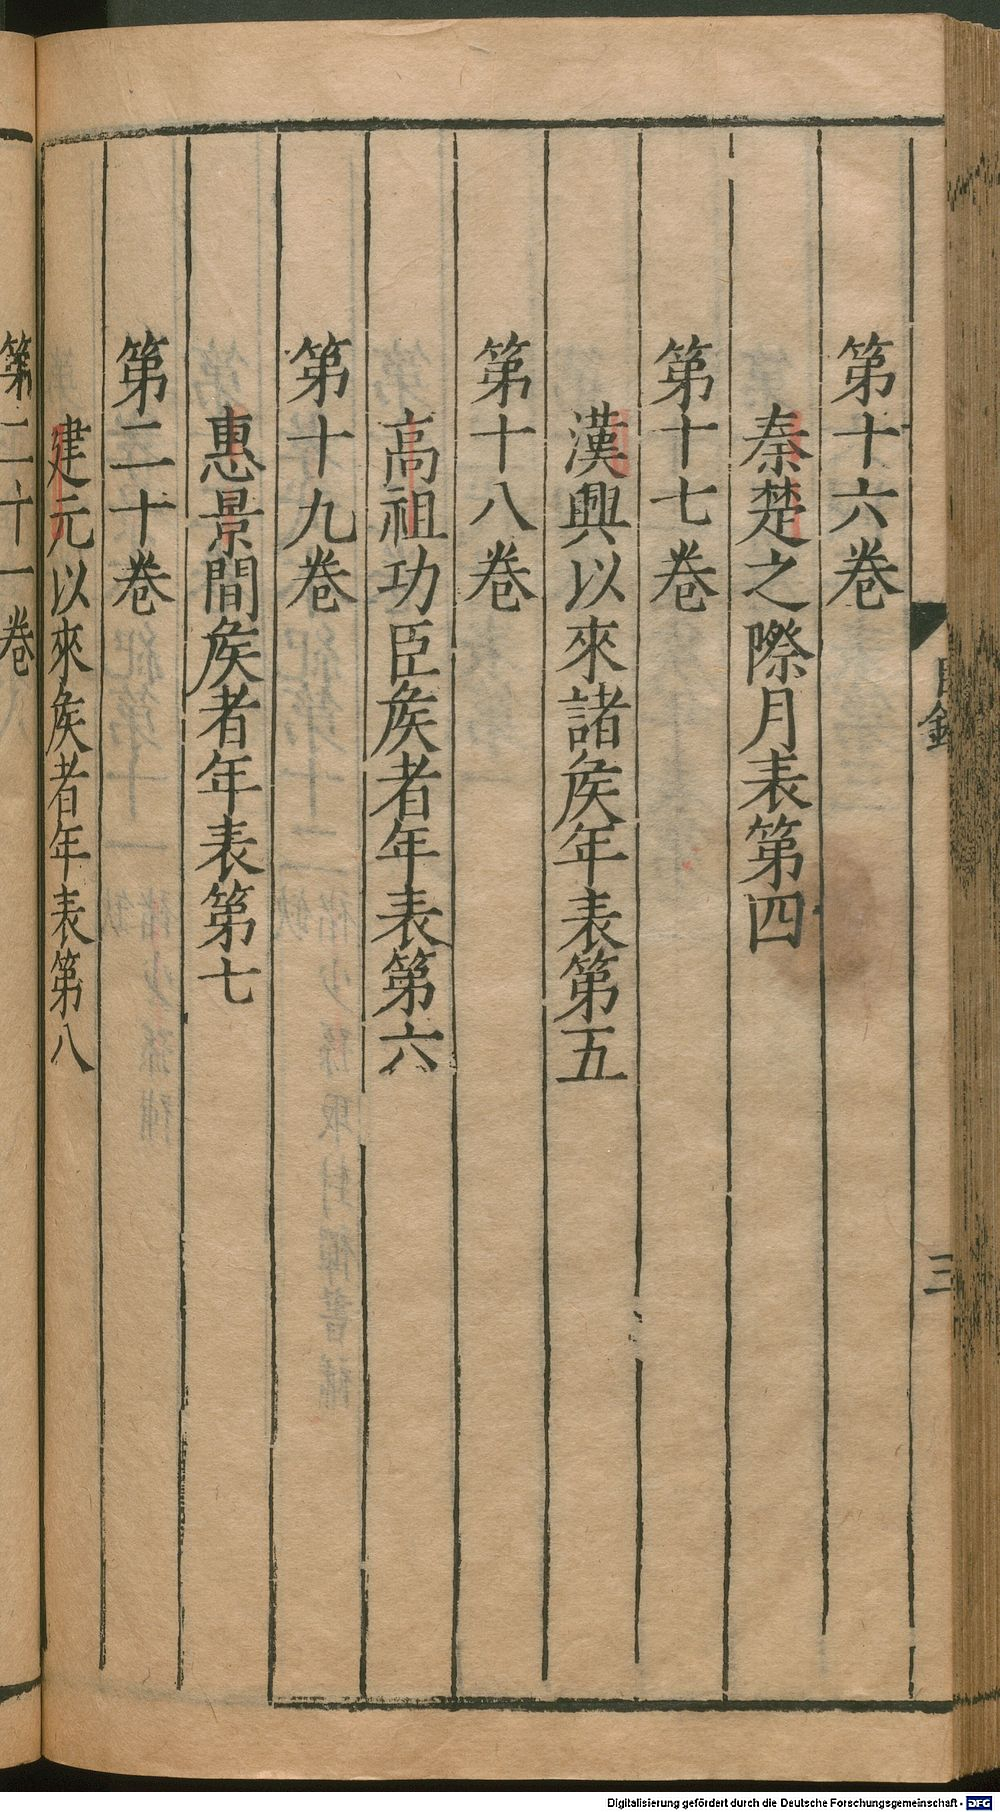 目錄
三
第十六卷
秦楚之際月表第四
第十七卷
漢興以來諸矦年表第五
第十八卷
高祖功臣矦者年表第六
第十九卷
惠景間矦者年表第七
第二十卷
建元以來矦者年表第八
第二十一卷
Digitalisierung gefördert durch die Deutsche Forschungsgemeinschaft - DFG